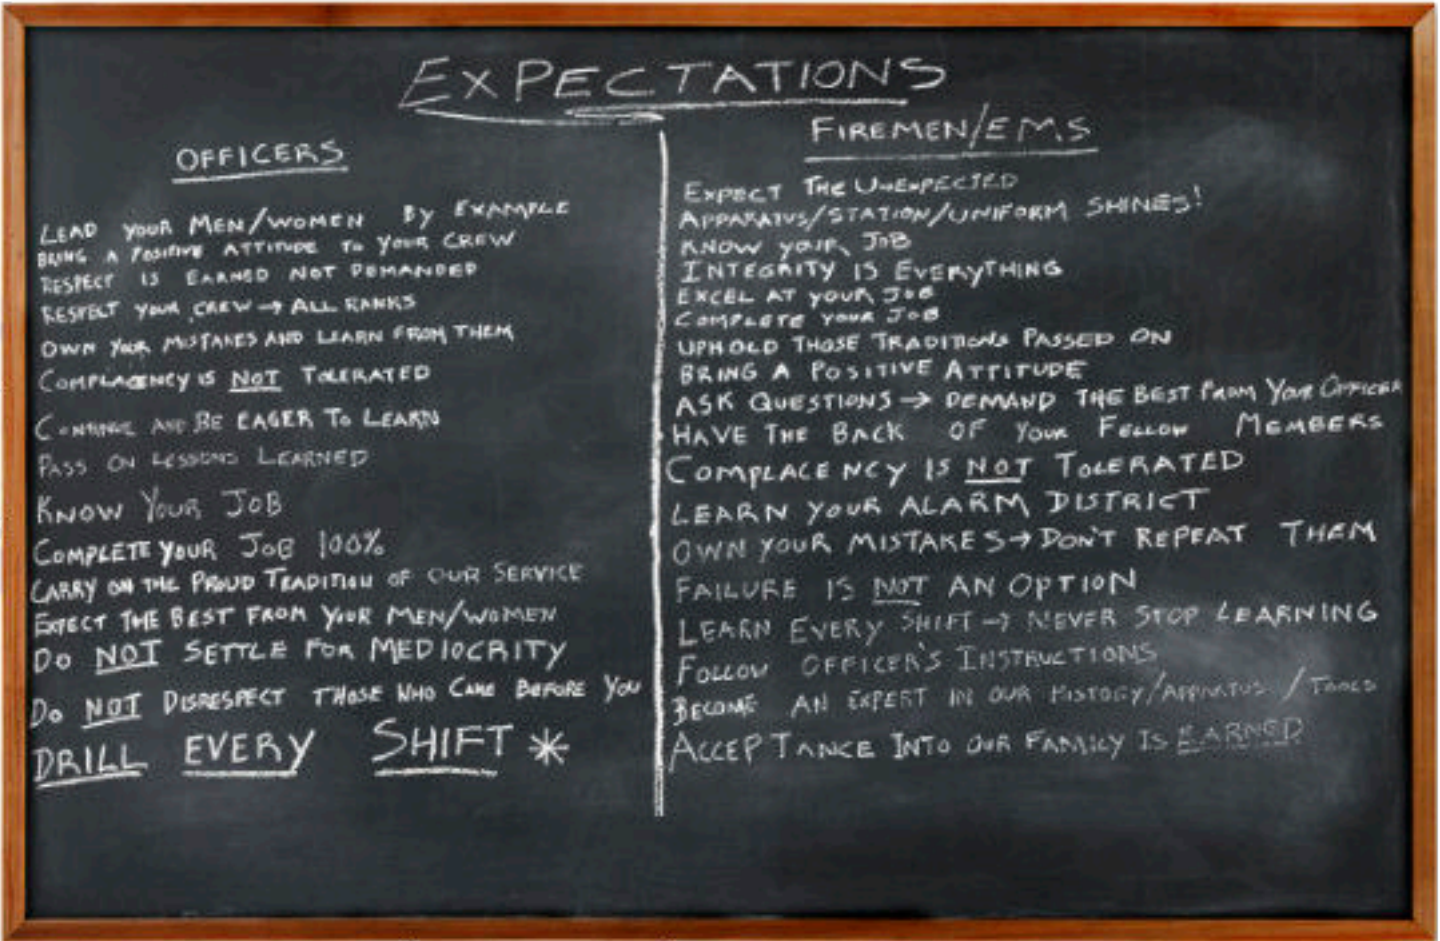 EXPECTATIONS
OFFICERS
LEAD YOUR MEN/WOMEN BY EXAMPLE
BRING A POSITIVE ATTITUDE TO YOUR CREW
RESPECT IS EARNED NOT DEMANDED
RESPECT YOUR CREW → ALL RANKS
OWN YOUR MISTAKES AND LEARN FROM THEM
COMPLACENCY IS NOT TOLERATED
CONTINUE AND BE EAGER TO LEARN
PASS ON LESSONS LEARNED
KNOW YOUR JOB
COMPLETE YOUR JOB 100%
CARRY ON THE PROUD TRADITION OF OUR SERVICE
EXPECT THE BEST FROM YOUR MEN/WOMEN
DO NOT SETTLE FOR MEDIOCRITY
DO NOT DISRESPECT THOSE WHO CAME BEFORE YOU
DRILL EVERY SHIFT *
FIREMEN/EMS
EXPECT THE UNEXPECTED
APPARATUS/STATION/UNIFORM SHINES!
KNOW YOUR JOB
INTEGRITY IS EVERYTHING
EXCEL AT YOUR JOB
COMPLETE YOUR JOB
UPHOLD THOSE TRADITIONS PASSED ON
BRING A POSITIVE ATTITUDE
ASK QUESTIONS → DEMAND THE BEST FROM YOUR OFFICER
HAVE THE BACK OF YOUR FELLOW MEMBERS
COMPLACENCY IS NOT TOLERATED
LEARN YOUR ALARM DISTRICT
OWN YOUR MISTAKES → DON'T REPEAT THEM
FAILURE IS NOT AN OPTION
LEARN EVERY SHIFT → NEVER STOP LEARNING
FOLLOW OFFICER'S INSTRUCTIONS
BECOME AN EXPERT IN OUR HISTORY/APPARATUS/TOOLS
ACCEPTANCE INTO OUR FAMILY IS EARNED